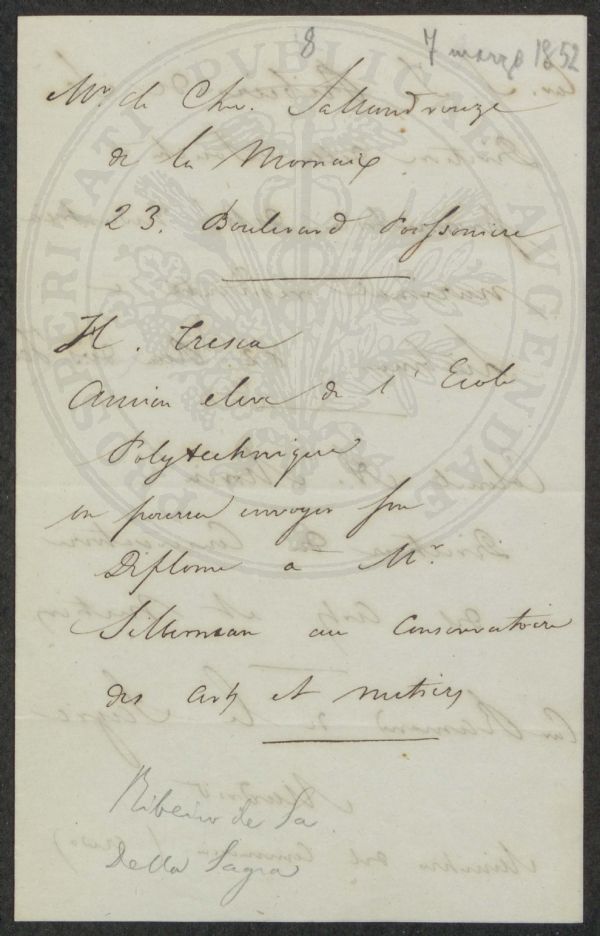 8
7 marzo 1852
Mr. de Chev. Sallandrouze
de la Mornaix
23. Boulevard Poissonniere
H. Tresca
Ancien eleve de l' Ecole
Polytechnique
on pourra envoyer son
Diplome a Mr.
Silberman au Conservatoire
des arts et metiers
Ribeiro de Sa
Della Sagra